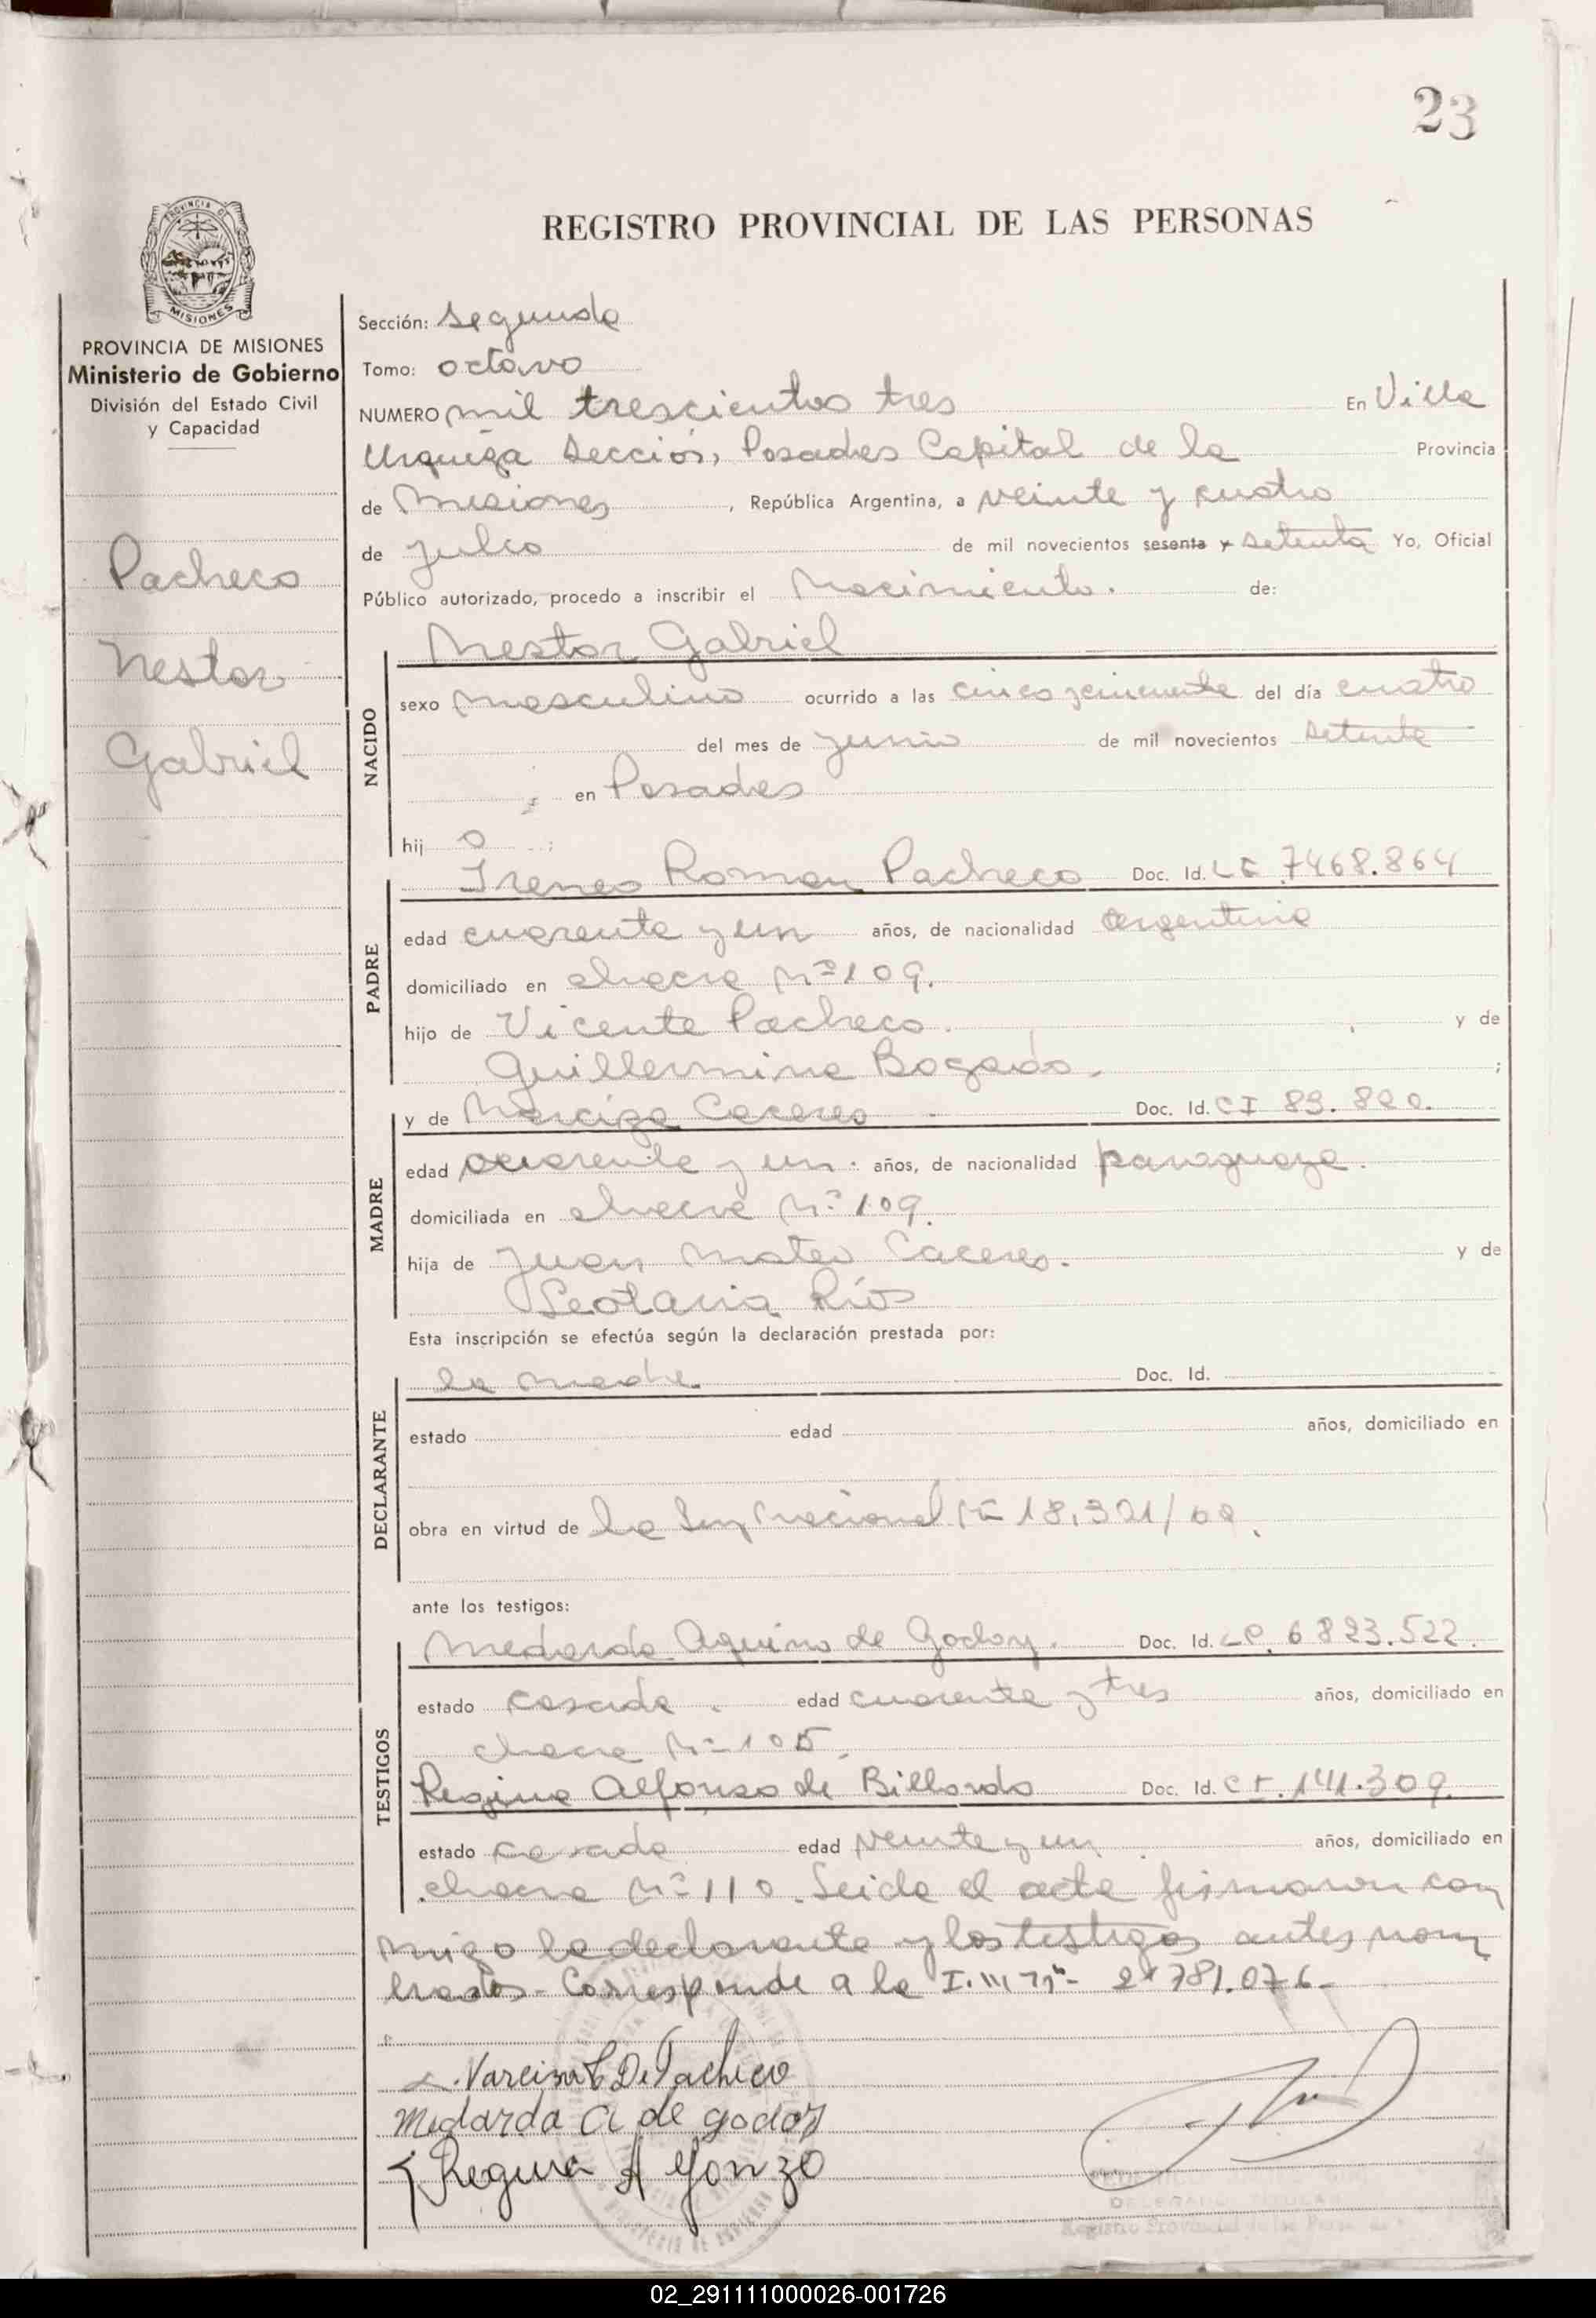 23
PROVINCIA DE
MISIONES
REGISTRO PROVINCIAL DE LAS PERSONAS
PROVINCIA DE MISIONES
Ministerio de Gobierno
División del Estado Civil
y Capacidad
Pacheco
Nestor
Gabriel
Sección: Segunda
Tomo: octavo
NUMERO mil trescientos tres En Villa
Urquiza Sección, Posadas Capital de la Provincia
de Misiones, República Argentina, a veinte y cuatro
de Julio de mil novecientos sesenta y setenta Yo, Oficial
Público autorizado, procedo a inscribir el Nacimiento. de:
Nestor Gabriel
NACIDO
sexo masculino ocurrido a las cinco y cincuenta del día cuatro
del mes de junio de mil novecientos setenta
en Posadas
hij o :
PADRE
Ireneo Roman Pacheco Doc. Id. LE 7468.864
edad cuarenta y un años, de nacionalidad argentina
domiciliado en chacra Nº 109.
hijo de Vicente Pacheco. y de
Guillermina Bogado. ;
MADRE
y de Narciza Caceres Doc. Id. CI 89.820.
edad cuarenta y un. años, de nacionalidad paraguaya.
domiciliada en chacra Nº 109.
hija de Juan Mateo Caceres. y de
Leotaria Ríos
Esta inscripción se efectúa según la declaración prestada por:
DECLARANTE
la madre Doc. Id.
estado edad años, domiciliado en
obra en virtud de la Ley Nacional Nº 18.321/69.
ante los testigos:
TESTIGOS
Medarda Aquino de Godoy. Doc. Id. LC. 6823.522.
estado casada. edad cuarenta y tres años, domiciliado en
chacra Nº 105.
Regina Alfonso de Billordo Doc. Id. CI. 141.309.
estado casada edad veinte y un años, domiciliado en
chacra Nº 110. Leida el acta firmaron con
migo la declarante y los testigos antes nom
brados. Corresponde a la 781.076.
Narcisa C De Pacheco
Medarda A de godoy
Regina Alfonzo
DELEGADO TITULAR
Registro Provincial de las Personas
02_291111000026-001726